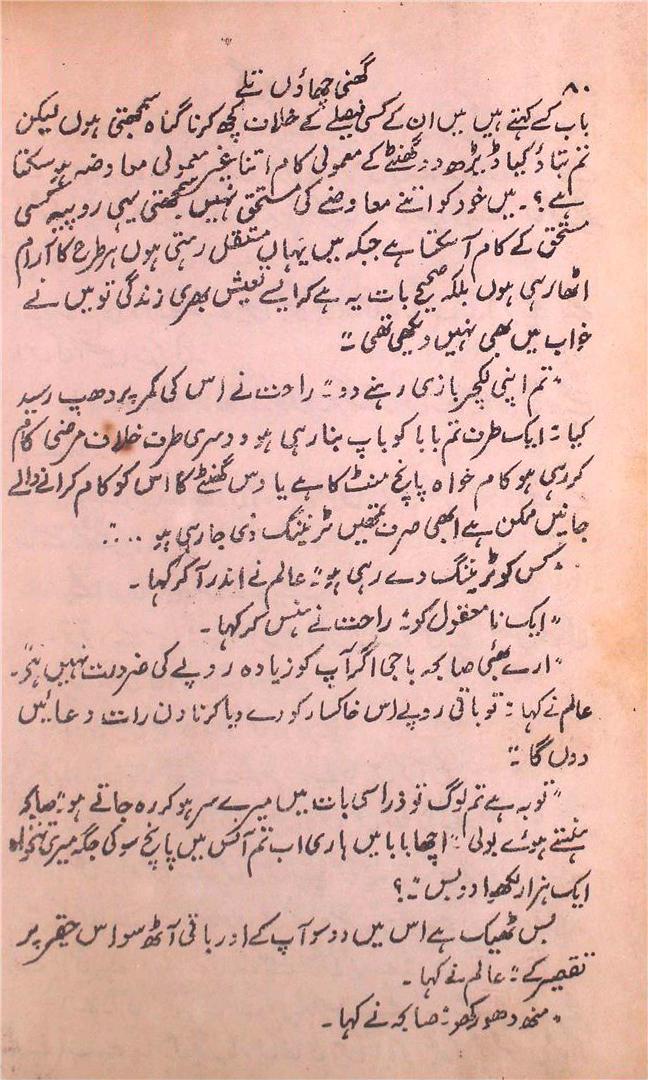 ۸۰ گھنی چھاؤں تلے
باپ کے کہتے ہیں میں ان کے کسی فیصلے کے خلاف کچھ کرنا گناہ سمجھتی ہوں لیکن
تم بتاؤ کیا ڈیڑھ دو گھنٹے کے معمولی کام اتنا غیر معمولی معاوضہ ہو سکتا
ہے؟۔ میں خود کو اتنے معاوضے کی مستحق نہیں سمجھتی یہی روپیہ کسی
مستحق کے کام آ سکتا ہے جبکہ میں یہاں مستقل رہتی ہوں ہر طرح کا آرام
اٹھا رہی ہوں بلکہ صحیح بات یہ ہے کہ ایسے تعیش بھری زندگی تو میں نے
خواب میں بھی نہیں دیکھی تھی ۔"
"تم اپنی لیکچر بازی رہنے دو۔" راحت نے اس کی کمر پر دھپ رسید
کیا۔ "ایک طرف تم بابا کو باپ بنا رہی ہو دوسری طرف خلاف مرضی کام
کر رہی ہو کام خواہ پانچ منٹ کا ہے یا دس گھنٹے کا اس کو کام کرانے والے
جانیں ممکن ہے ابھی صرف تمھیں ٹریننگ دی جا رہی ہو ...."
"کس کو ٹریننگ دے رہی ہو۔" عالم نے اندر آ کر کہا۔
"ایک نامعقول کو۔" راحت نے ہنس کر کہا۔
"ارے بھئی صابحہ باجی اگر آپ کو زیادہ روپے کی ضرورت نہیں ہے"۔
عالم نے کہا۔ "تو باقی روپے اس خاکسار کو دے دیا کرنا دن رات دعائیں
دوں گا۔"
"توبہ ہے تم لوگ تو ذرا سی بات میں میرے سر ہو کر رہ جاتے ہو۔" صابحہ
ہنستے ہوئے بولی۔ "اچھا بابا میں ہاری اب تم آفس میں پانچ سو کی جگہ میری تنخواہ
ایک ہزار لکھوا دو بس۔"؟
بس ٹھیک ہے اس میں دو سو آپ کے اور باقی آٹھ سو اس حقیر پر
تقصیر کے۔" عالم نے کہا۔
"منھ دھو رکھو۔" صابحہ نے کہا۔